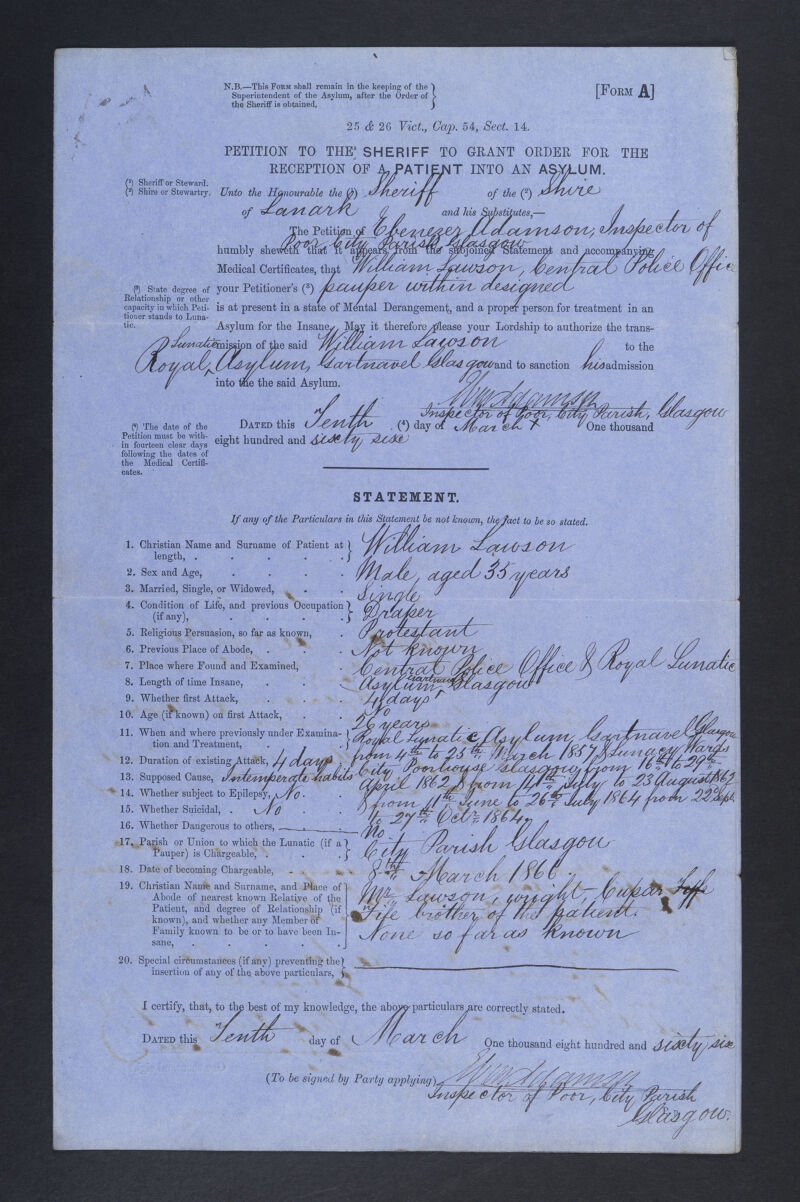 N.B.—This Form shall remain in the keeping of the
Superintendent of the Asylum, after the Order of
the Sheriff is obtained.
[Form A]
25 & 26 Vict., Cap. 54, Sect. 14.
PETITION TO THE SHERIFF TO GRANT ORDER FOR THE
RECEPTION OF A PATIENT INTO AN ASYLUM.
(¹) Sheriff or Steward.
(²) Shire or Stewartry.
Unto the Honourable the (¹) Sheriff of the (²) Shire
of Lanark and his Substitutes,—
The Petition of Ebenezer Adamson, Inspector of
Poor, City Parish, Glasgow
humbly sheweth that it appears from the subjoined Statement and accompanying
Medical Certificates, that William Lawson, Central Police Office
(³) State degree of
Relationship or other
capacity in which Peti-
tioner stands to Luna-
tic.
your Petitioner's (³) pauper within designed
is at present in a state of Mental Derangement, and a proper person for treatment in an
Asylum for the Insane. May it therefore please your Lordship to authorize the trans-
mission of the said William Lawson to the
Lunatic
Royal, ^ Asylum, Gartnavel Glasgow and to sanction his admission
into the the said Asylum.
Eben Adamson
Inspector of Poor, City Parish, Glasgow
(⁴) The date of the
Petition must be with-
in fourteen clear days
following the dates of
the Medical Certifi-
cates.
Dated this Tenth (⁴) day of March One thousand
eight hundred and sixty six
STATEMENT.
If any of the Particulars in this Statement be not known, the fact to be so stated.
1. Christian Name and Surname of Patient at
length, . . . . . William Lawson
2. Sex and Age, . . . . Male, aged 35 years
3. Married, Single, or Widowed, . . . Single
4. Condition of Life, and previous Occupation
(if any), . . . . . Draper
5. Religious Persuasion, so far as known, . Protestant
6. Previous Place of Abode, . . . Not known
7. Place where Found and Examined, . Central Police Office & Royal Lunatic
Asylum Gartnavel ^ Glasgow
8. Length of time Insane, . . . 4 days
9. Whether first Attack, . . . No
10. Age (if known) on first Attack, . . 26 years
11. When and where previously under Examina-
tion and Treatment, . . . Royal Lunatic Asylum, Gartnavel Glasgow
from 4th to 25th March 1857 & Lunacy Wards
City Poorhouse Glasgow from 16th to 29th
April 1862 & from 14th July to 23 August 1862
& from 11th June to 26th July 1864 from 22d Sept.
to 27th Octr. 1864.
12. Duration of existing Attack, 4 days
13. Supposed Cause, Intemperate habits
14. Whether subject to Epilepsy, No.
15. Whether Suicidal, . No
16. Whether Dangerous to others, No.
17. Parish or Union to which the Lunatic (if a
Pauper) is Chargeable, . . . City Parish Glasgow
18. Date of becoming Chargeable, . . 8th March 1866.
19. Christian Name and Surname, and Place of
Abode of nearest known Relative of the
Patient, and degree of Relationship (if
known), and whether any Member of
Family known to be or to have been In-
sane, . . . . . .
Mr. Lawson, wright, Cupar Fyfe
Fife brother of the patient.
None so far as known
20. Special circumstances (if any) preventing the
insertion of any of the above particulars,
I certify, that, to the best of my knowledge, the above particulars are correctly stated.
Dated this Tenth day of March One thousand eight hundred and sixty six
(To be signed by Party applying) Eben Adamson
Inspector of Poor, City Parish
Glasgow.